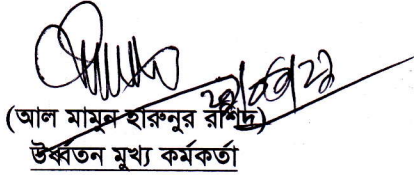 (আল মামুন হারুনুর রাশিদ)
উর্ধ্বতন মুখ্য কর্মকর্তা